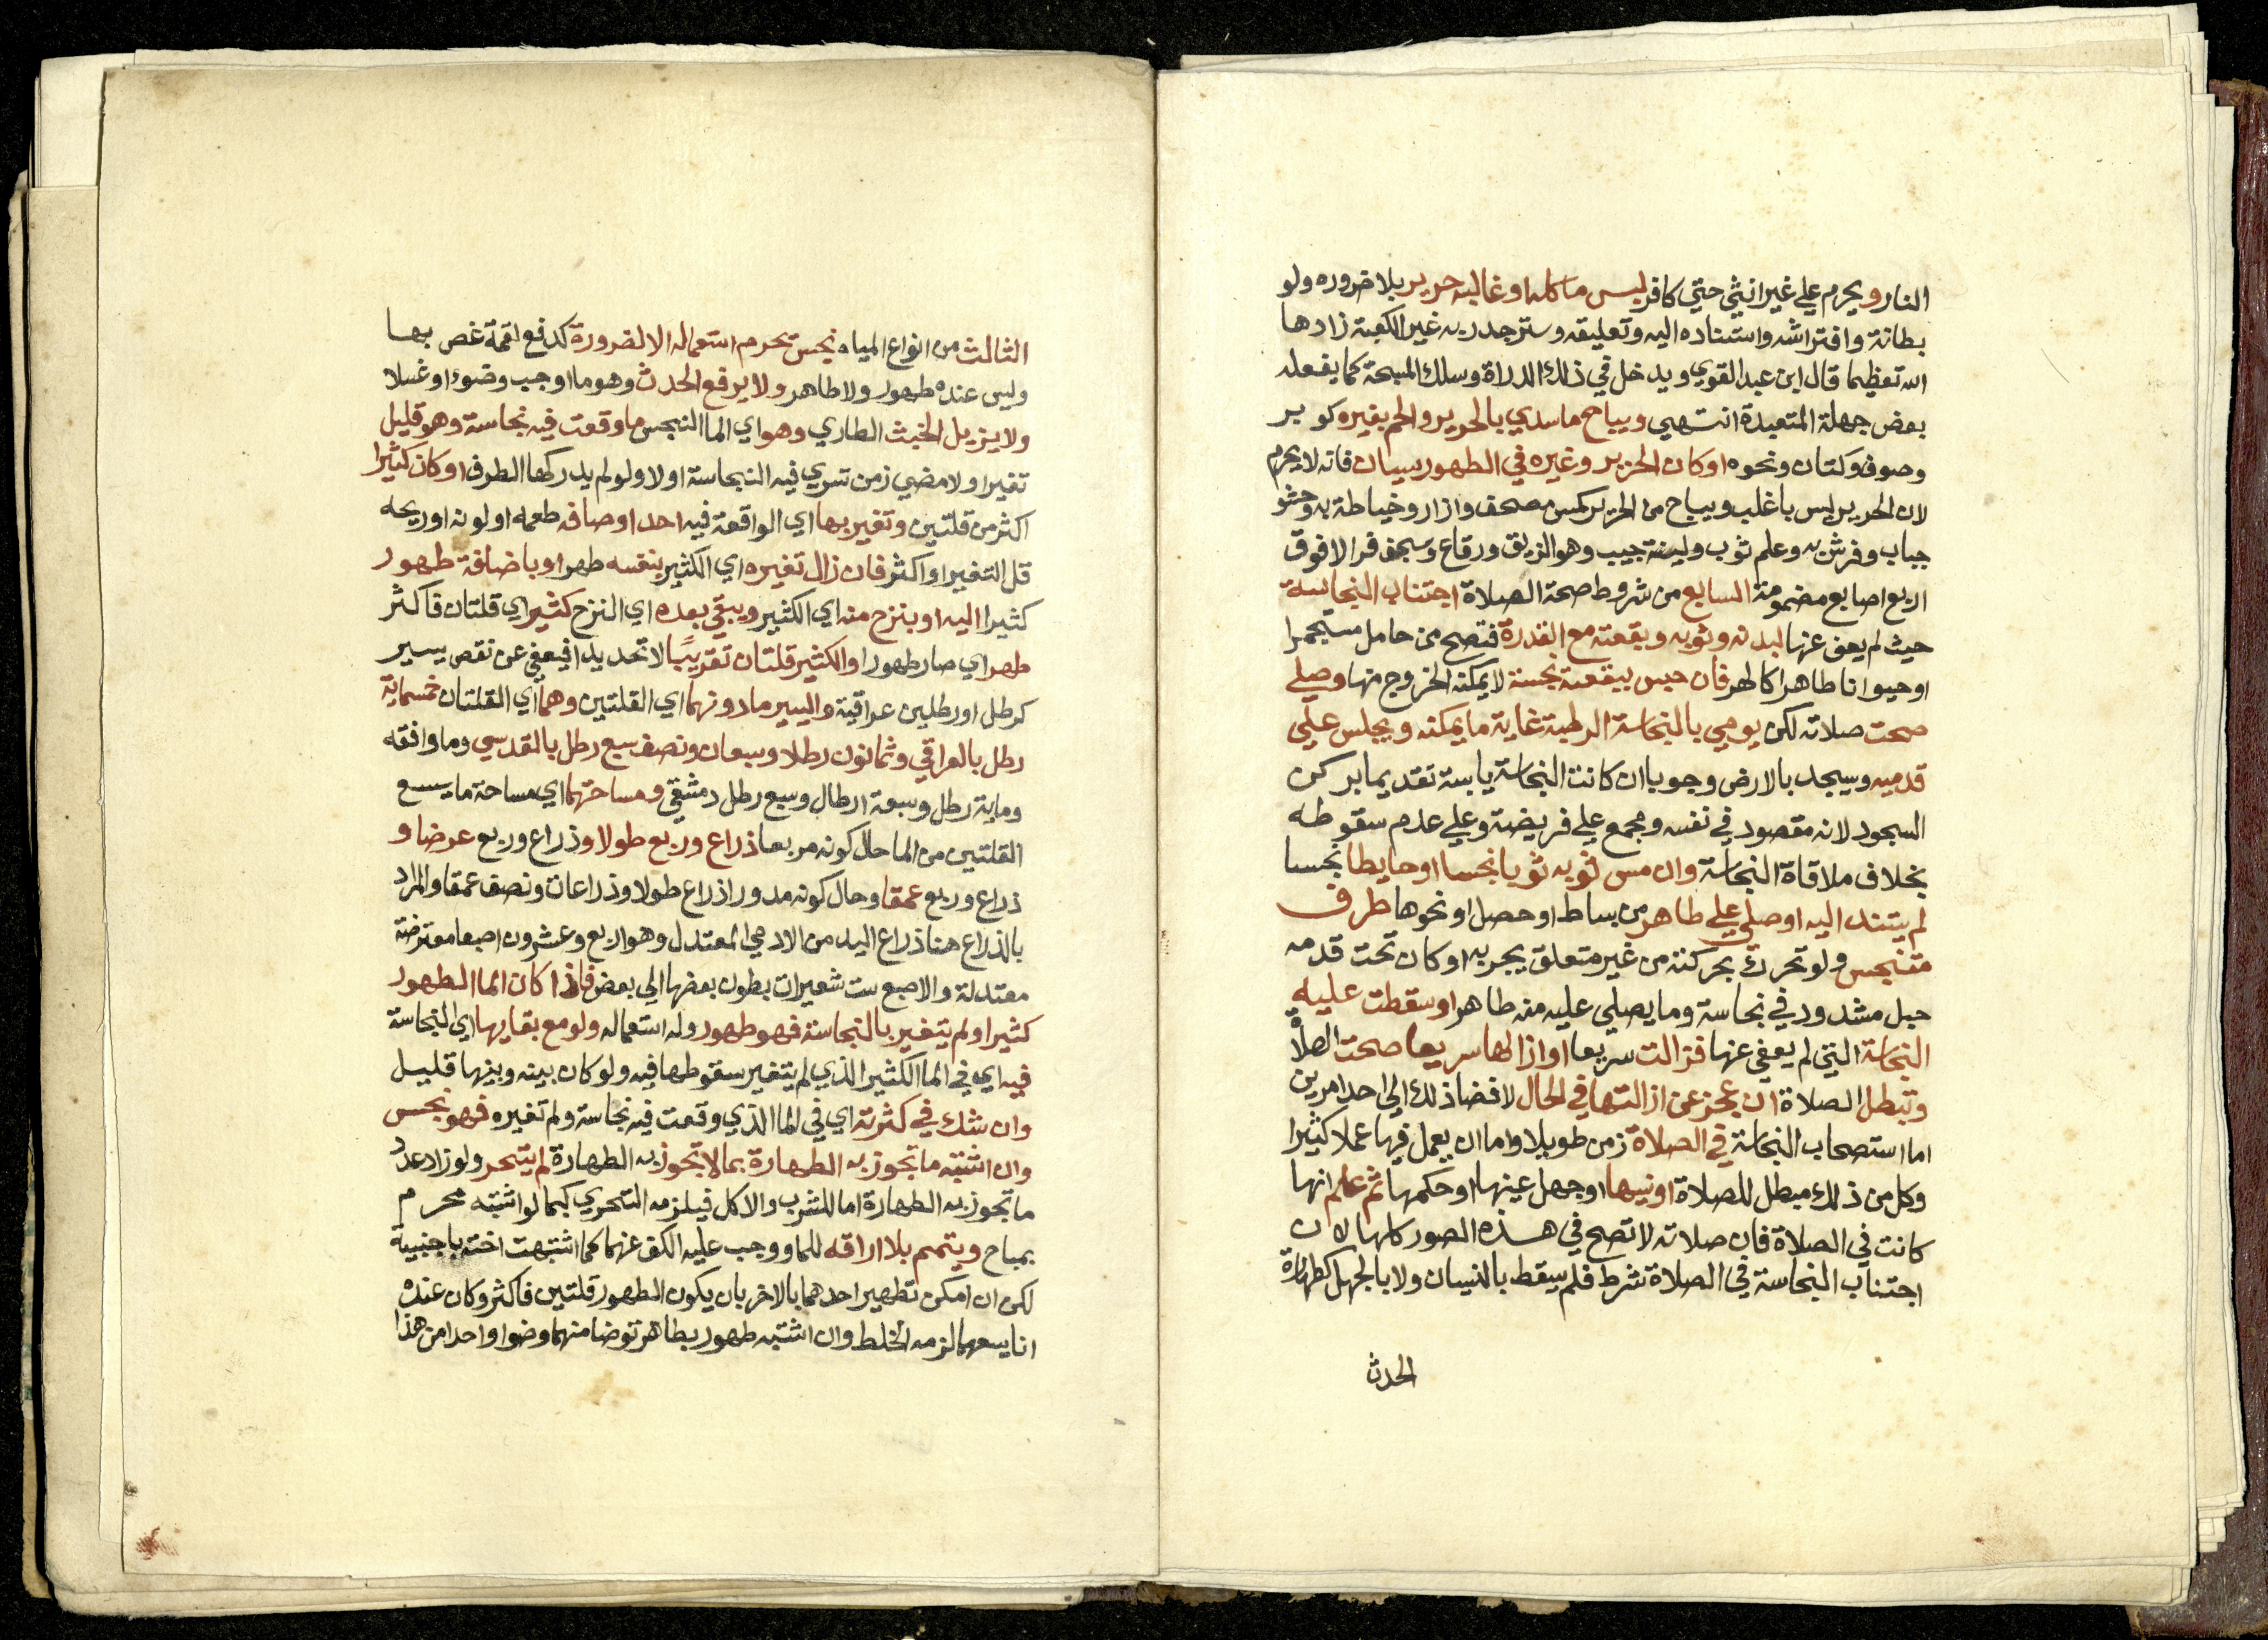 النار ويحرم علي غير انثي حتي كافر لبس ما كله او غالبه حرير بلا ضروره ولو
بطانة وافتراشه واستناده اليه وتعليقه وستر جدر به غير الكعبة زادها
الله تعظيما قال ابن عبد القوي ويدخل في ذلك الدراة وسلك المسبحة كما يفعله
بعض جهلة المتعبدة انتهي ويباح ما سدي بالحرير والحم بغيره كوبر
وصوف وكتان ونحوه او كان الحرير وغيره في الظهور سيان فانه لا يحرم
لان الحرير ليس باغلب ويباح من الحرير كيس مصحف وازرار وخياطة به وحشو
جباب وفرش به وعلم ثوب ولبنة جيب وهو الزيق ورقاع وسجف فرا لا فوق
اربع اصابع مضمومة السابع من شروط صحة الصلاة اجتناب النجاسة
حيث لم يعف عنها لبدنه وثوبه وبقعته مع القدرة فتصح من حامل مستجمرا
او حيوانا طاهرا كالهر فان حبس ببقعة نجسة لا يمكنه الخروج منها وصلي
صحت صلاته لكن يومي بالنجاسة الرطبة غاية ما يمكنه ويجلس علي
قدميه وسيجد بالارض وجوبا ان كانت النجاسة يابسة تقديما بركن
السجود لانه مقصود في نفسه ومجمع علي فريضته وعلي عدم سقوطه
بخلاف ملاقاة النجاسة وان مس ثوبه ثوبا نجسا او حايطا نجسا
لم يستند اليه او صلي علي طاهر من بساط او حصل او نحوها طرف
متنجس ولو تحرك بحركته من غير متعلق يجر به او كان تحت قدمه
حبل مشدود في نجاسة وما يصلي عليه منه طاهر او سقطت عليه
النجاسة التي لم يعفي عنها فزالت سريعا او ازالها سريعا صحت الصلاة
وتبطل الصلاة ان عجز عن ازالتها في الحال لافضا ذلك الي احد امرين
اما استصحاب النجاسة في الصلاة زمن طويلا واما ان يعمل فيها عملا كثيرا
وكل من ذلك مبطل للصلاة او نسيها او جهل عينها او حكمها ثم علم انها
كانت في الصلاة فان صلاته لا تصح في هذه الصور كلها لان
اجتناب النجاسة في الصلاة شرط فلم يسقط بالنسيان ولا بالجهل كطهارة
الحدث
الثالث من انواع المياه نجس يحرم استعماله الا لضرورة كدفع لقمة غص بها
وليس عنده طهور ولا طاهر ولا يرفع الحدث وهو ما اوجب وضوءا او غسلا
ولا يزيل الخبث الطاري وهو اي الما النجس ما وقعت فيه نجاسة وهو قليل
تغير او لا مضي زمن تسري فيه النجاسة او لا ولو لم يدركها الطرف او كان كثيرا
اكثر من قلتين وتغير بها اي الواقعة فيه احد اوصافه طعمه او لونه او ريحه
قل التغير او اكثر فان زال تغيره اي الكثير بنفسه طهر او باضافة طهور
كثيرا اليه او بنزح منه اي الكثير ويبقي بعده اي النزح كثير اي قلتان فاكثر
طهر اي صار طهورا والكثير قلتان تقريبًا لا تحديدا فيعفي عن نقص يسير
كرطل او رطلين عراقية واليسير ما دونهما اي القلتين وهما اي القلتان خمسماية
رطل بالعراقي وثمانون رطلا وسبعان ونصف سبع رطل بالقدسي وما وافقه
وماية رطل وسبعة ارطال وسبع رطل دمشقي ومساحتهما اي مساحة ما يسع
القلتين من الما حال كونه مربعا ذراع وربع طولا وذراع وربع عرضا و
ذراع وربع عمقا وحال كونه مدورا ذراع طولا وذراعان ونصف عمقا والمراد
بالذراع هنا ذراع اليد من الادمي المعتدل وهو اربع وعشرون اصبعا معترضة
معتدلة والاصبع ست شعيرات بطون بعضها الي بعض فاذا كان الما الطهور
كثيرا ولم يتغير بالنجاسة فهو طهور وله استعماله ولو مع بقايها اي النجاسة
فيه اي في الما الكثير الذي لم يتغير سقوطها فيه ولو كان بينه وبينها قليل
وان شك في كثرته اي في الما الذي وقعت فيه نجاسة ولم تغيره فهو نجس
وان اشتبه ما تجوز به الطهارة بما لا تجوز به الطهارة لم يتحر ولو زاد عدد
ما تجوز به الطهارة اما للشرب والاكل فيلزمه التحري كما لو اشتبه محرم
بمباح ويتمم بلا اراقة للما ووجب عليه الكف عنهما كما اشتبهت اخته باجنبية
لكن ان امكن تطهير احدهما بالاخر بان يكون الطهور قلتين فاكثر وكان عنده
انا يسعهما لزمه الخلط وان اشتبه طهور بطاهر توضا منهما وضوا واحدا من هذا